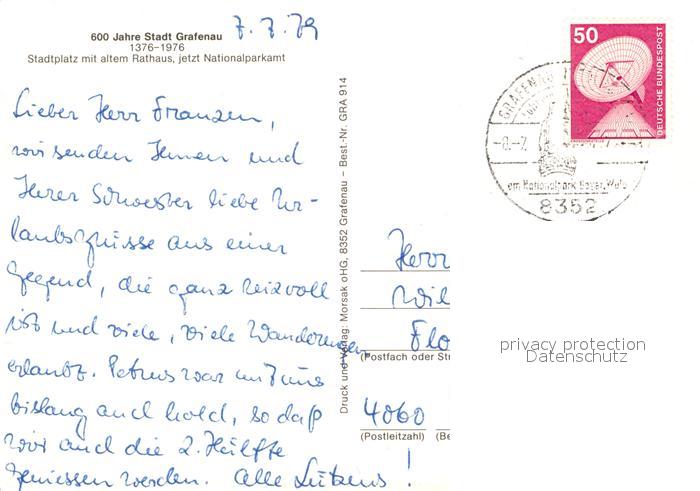 7.7.79
600 Jahre Stadt Grafenau
1376-1976
Stadtplatz mit altem Rathaus, jetzt Nationalparkamt
Lieber Herr Franzen,
wir senden Ihnen und
Ihrer Schwester liebe Ur-
laubsgrüsse aus einer
Gegend, die ganz reizvoll
ist und viele, viele Wanderungen
erlaubt. Petrus war mit uns
bislang auch hold, so daß
wir auch die 2. Hälfte
geniessen werden. Alle Lützens!
Druck und Verlag: Morsak oHG, 8352 Grafenau – Best.-Nr. GRA 914
50
DEUTSCHE BUNDESPOST
GRAFENAU
-8.-7.
am Nationalpark Bayer. Wald
8352
Herr
Wil
Flo
(Postfach oder St
4060
(Postleitzahl) (Be
privacy protection
Datenschutz